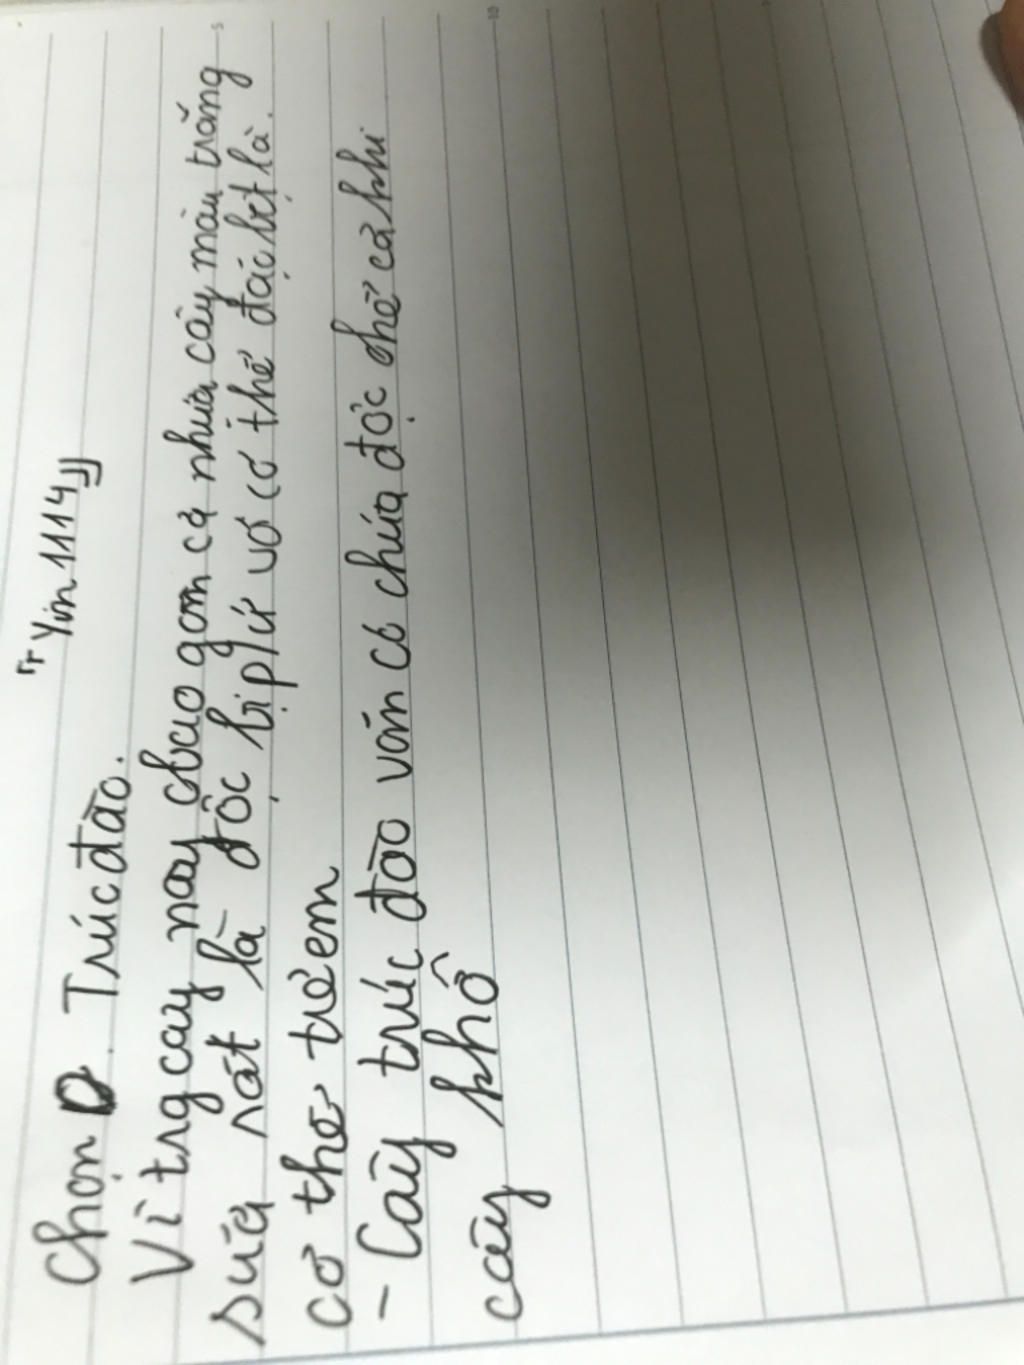 『Yin 1114』
Chọn D. Trúc đào.
Vì trg cây này bao gồm cả nhựa cây màu trắng
sữa rất là độc bịp lứ vơ cơ thể đặc bịt là.
cơ thể trẻ em
- Cây trúc đào vẫn có chứa độc chế cả khi
cây khô